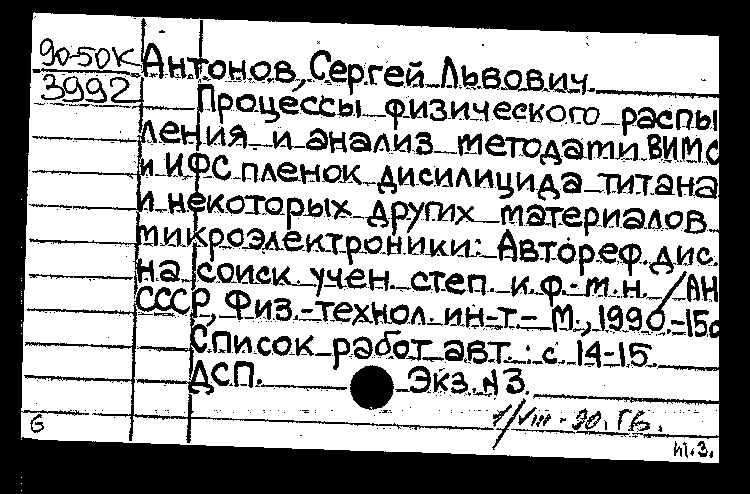 90-50К Антонов, Сергей Львович.
3992 Процессы физического распы
ления и анализ методами ВИМС
и ИФС пленок дисилицида титана
и некоторых других материалов
микроэлектроники: Автореф. дис.
на соиск. учен. степ. к.ф.-м.н. / АН
СССР, Физ.-технол. ин-т.- М., 1990.-15с
Список работ авт.: с. 14-15.
ДСП. Экз. N3.
1/VIII-90.